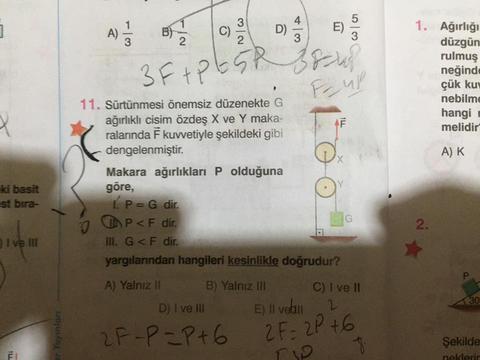 A) 1/3 B) 1/2 C) 3/2 D) 4/3 E) 5/3
3F+P=5P
3F=4P
F=4P
11. Sürtünmesi önemsiz düzenekte G
ağırlıklı cisim özdeş X ve Y maka-
ralarında F kuvvetiyle şekildeki gibi
dengelenmiştir.
Makara ağırlıkları P olduğuna
göre,
I. P = G dir.
II. P < F dir.
III. G < F dir.
yargılarından hangileri kesinlikle doğrudur?
A) Yalnız II B) Yalnız III C) I ve II
D) I ve III E) II ve III
2F-P=P+6
2F=2P+6
F
X
Y
G
1. Ağırlığı
düzgün
rulmuş
neğinde
çük kuv
nebilme
hangi
melidir?
A) K
2.
P
30
Şekilde
neklerin
ki basit
st bıra-
) I ve III
Yayınları
F